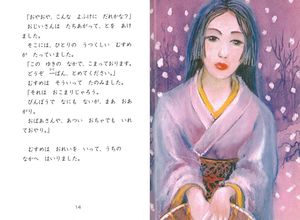 「おやおや、こんな よふけに だれかな?」
おじいさんは たちあがって、とを あけ
ました。
そこには、ひとりの うつくしい むすめ
が たっていました。
「この ゆきの なかで、こまっております。
どうぞ 一ばん、とめてください。」
むすめは そういって たのみました。
「それは おこまりじゃろう。
びんぼうで なにも ないが、まあ おあ
がり。
おばあさんや、あつい おちゃでも いれ
ておやり。」
むすめは おれいを いって、うちの
なかへ はいりました。
14